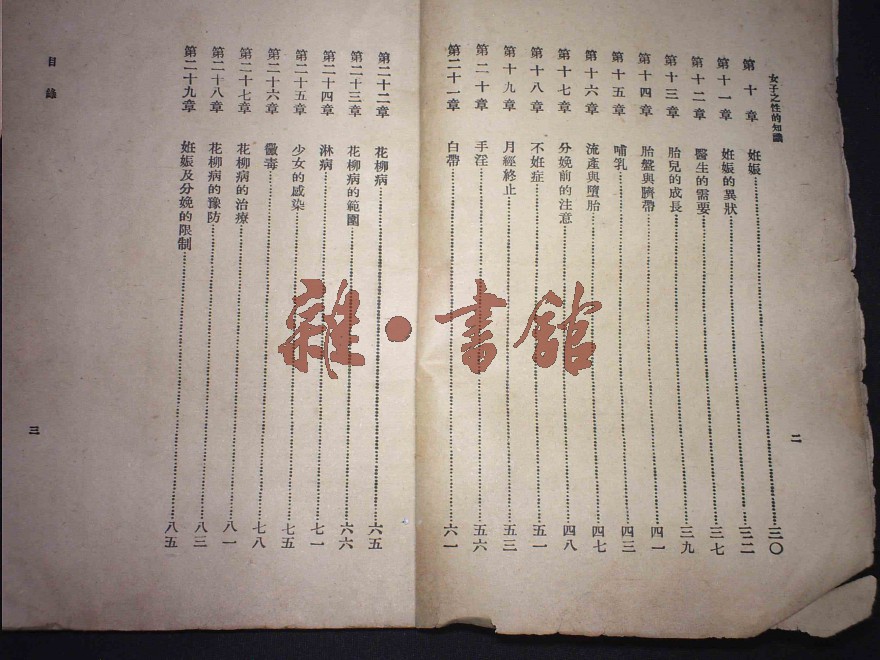 女子之性的知識
第十章 妊娠 三〇
第十一章 妊娠的異狀 三二
第十二章 醫生的需要 三七
第十三章 胎兒的成長 三九
第十四章 胎盤與臍帶 四一
第十五章 哺乳 四三
第十六章 流產與墮胎 四七
第十七章 分娩前的注意 四八
第十八章 不妊症 五一
第十九章 月經終止 五三
第二十章 手淫 五六
第二十一章 白帶 六一
二
第二十二章 花柳病 六五
第二十三章 花柳病的範圍 六六
第二十四章 淋病 七一
第二十五章 少女的感染 七五
第二十六章 黴毒 七八
第二十七章 花柳病的治療 八一
第二十八章 花柳病的豫防 八三
第二十九章 妊娠及分娩的限制 八五
目錄
三
雜·書館